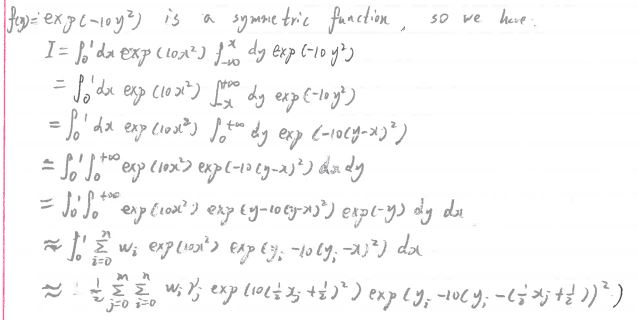 f(y)=exp(-10y²) is a symmetric function, so we have:
I = ∫₀¹ dx exp(10x²) ∫_{-∞}^{x} dy exp(-10y²)
= ∫₀¹ dx exp(10x²) ∫_{-x}^{+∞} dy exp(-10y²)
= ∫₀¹ dx exp(10x²) ∫₀^{+∞} dy exp(-10(y-x)²)
= ∫₀¹ ∫₀^{+∞} exp(10x²) exp(-10(y-x)²) dx dy
= ∫₀¹ ∫₀^{+∞} exp(10x²) exp(y-10(y-x)²) exp(-y) dy dx
≈ ∫₀¹ Σ_{i=0}^{n} w_i exp(10x²) exp(y_i -10(y_i -x)²) dx
≈ ½ Σ_{j=0}^{m} Σ_{i=0}^{n} w_i γ_j exp(10(½x_j+½)²) exp(y_i -10(y_i -(½x_j+½))²)